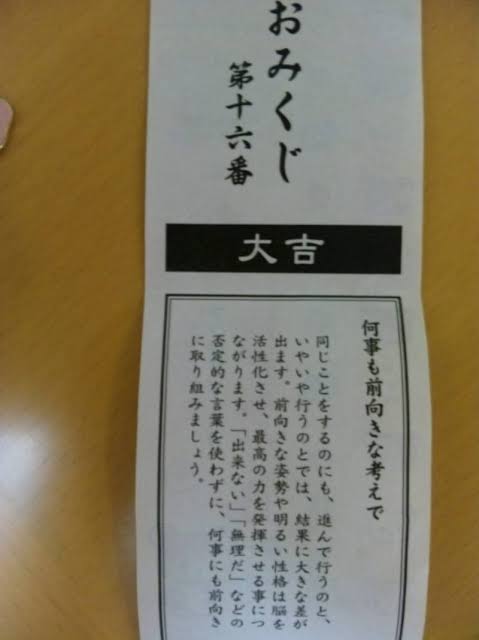 おみくじ
第十六番
大吉
何事も前向きな考えで
同じことをするのにも、進んで行うのと、
いやいや行うのとでは、結果に大きな差が
出ます。前向きな姿勢や明るい性格は脳を
活性化させ、最高の力を発揮させる事につ
ながります。「出来ない」「無理だ」などの
否定的な言葉を使わずに、何事にも前向き
に取り組みましょう。